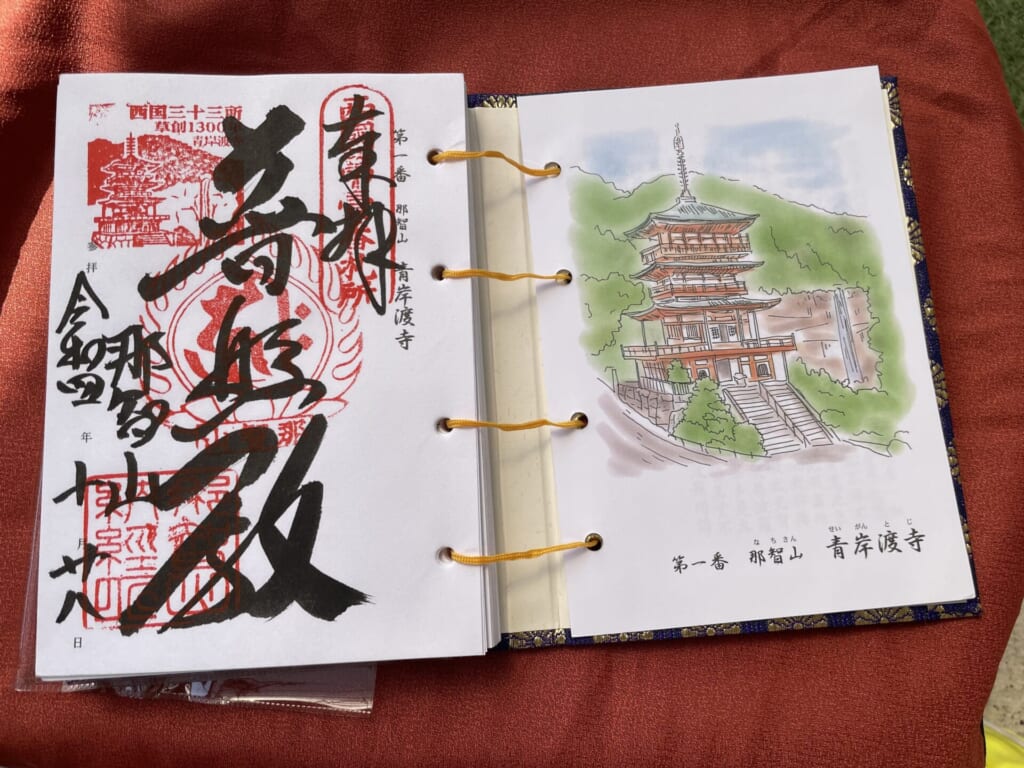 第一番 那智山 青岸渡寺
奉拝
普照殿
西国三十三所
草創1300年
那智山
参拝 令和四年十月廿八日
なちさん せいがんとじ
第一番 那智山 青岸渡寺